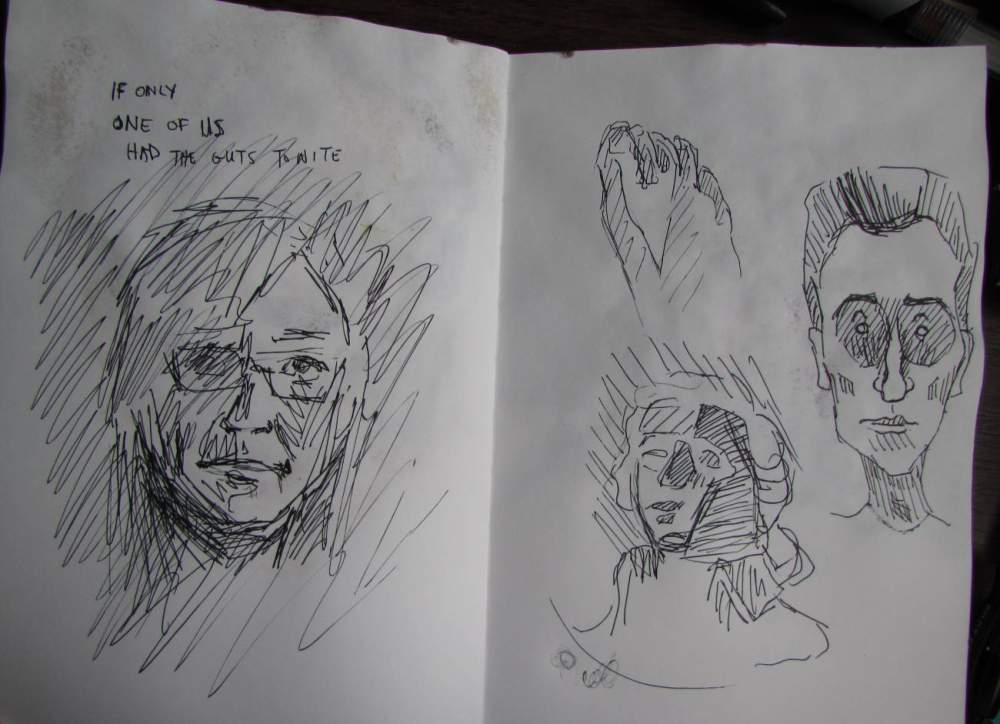 IF ONLY
ONE OF US
HAD THE GUTS TO NITE